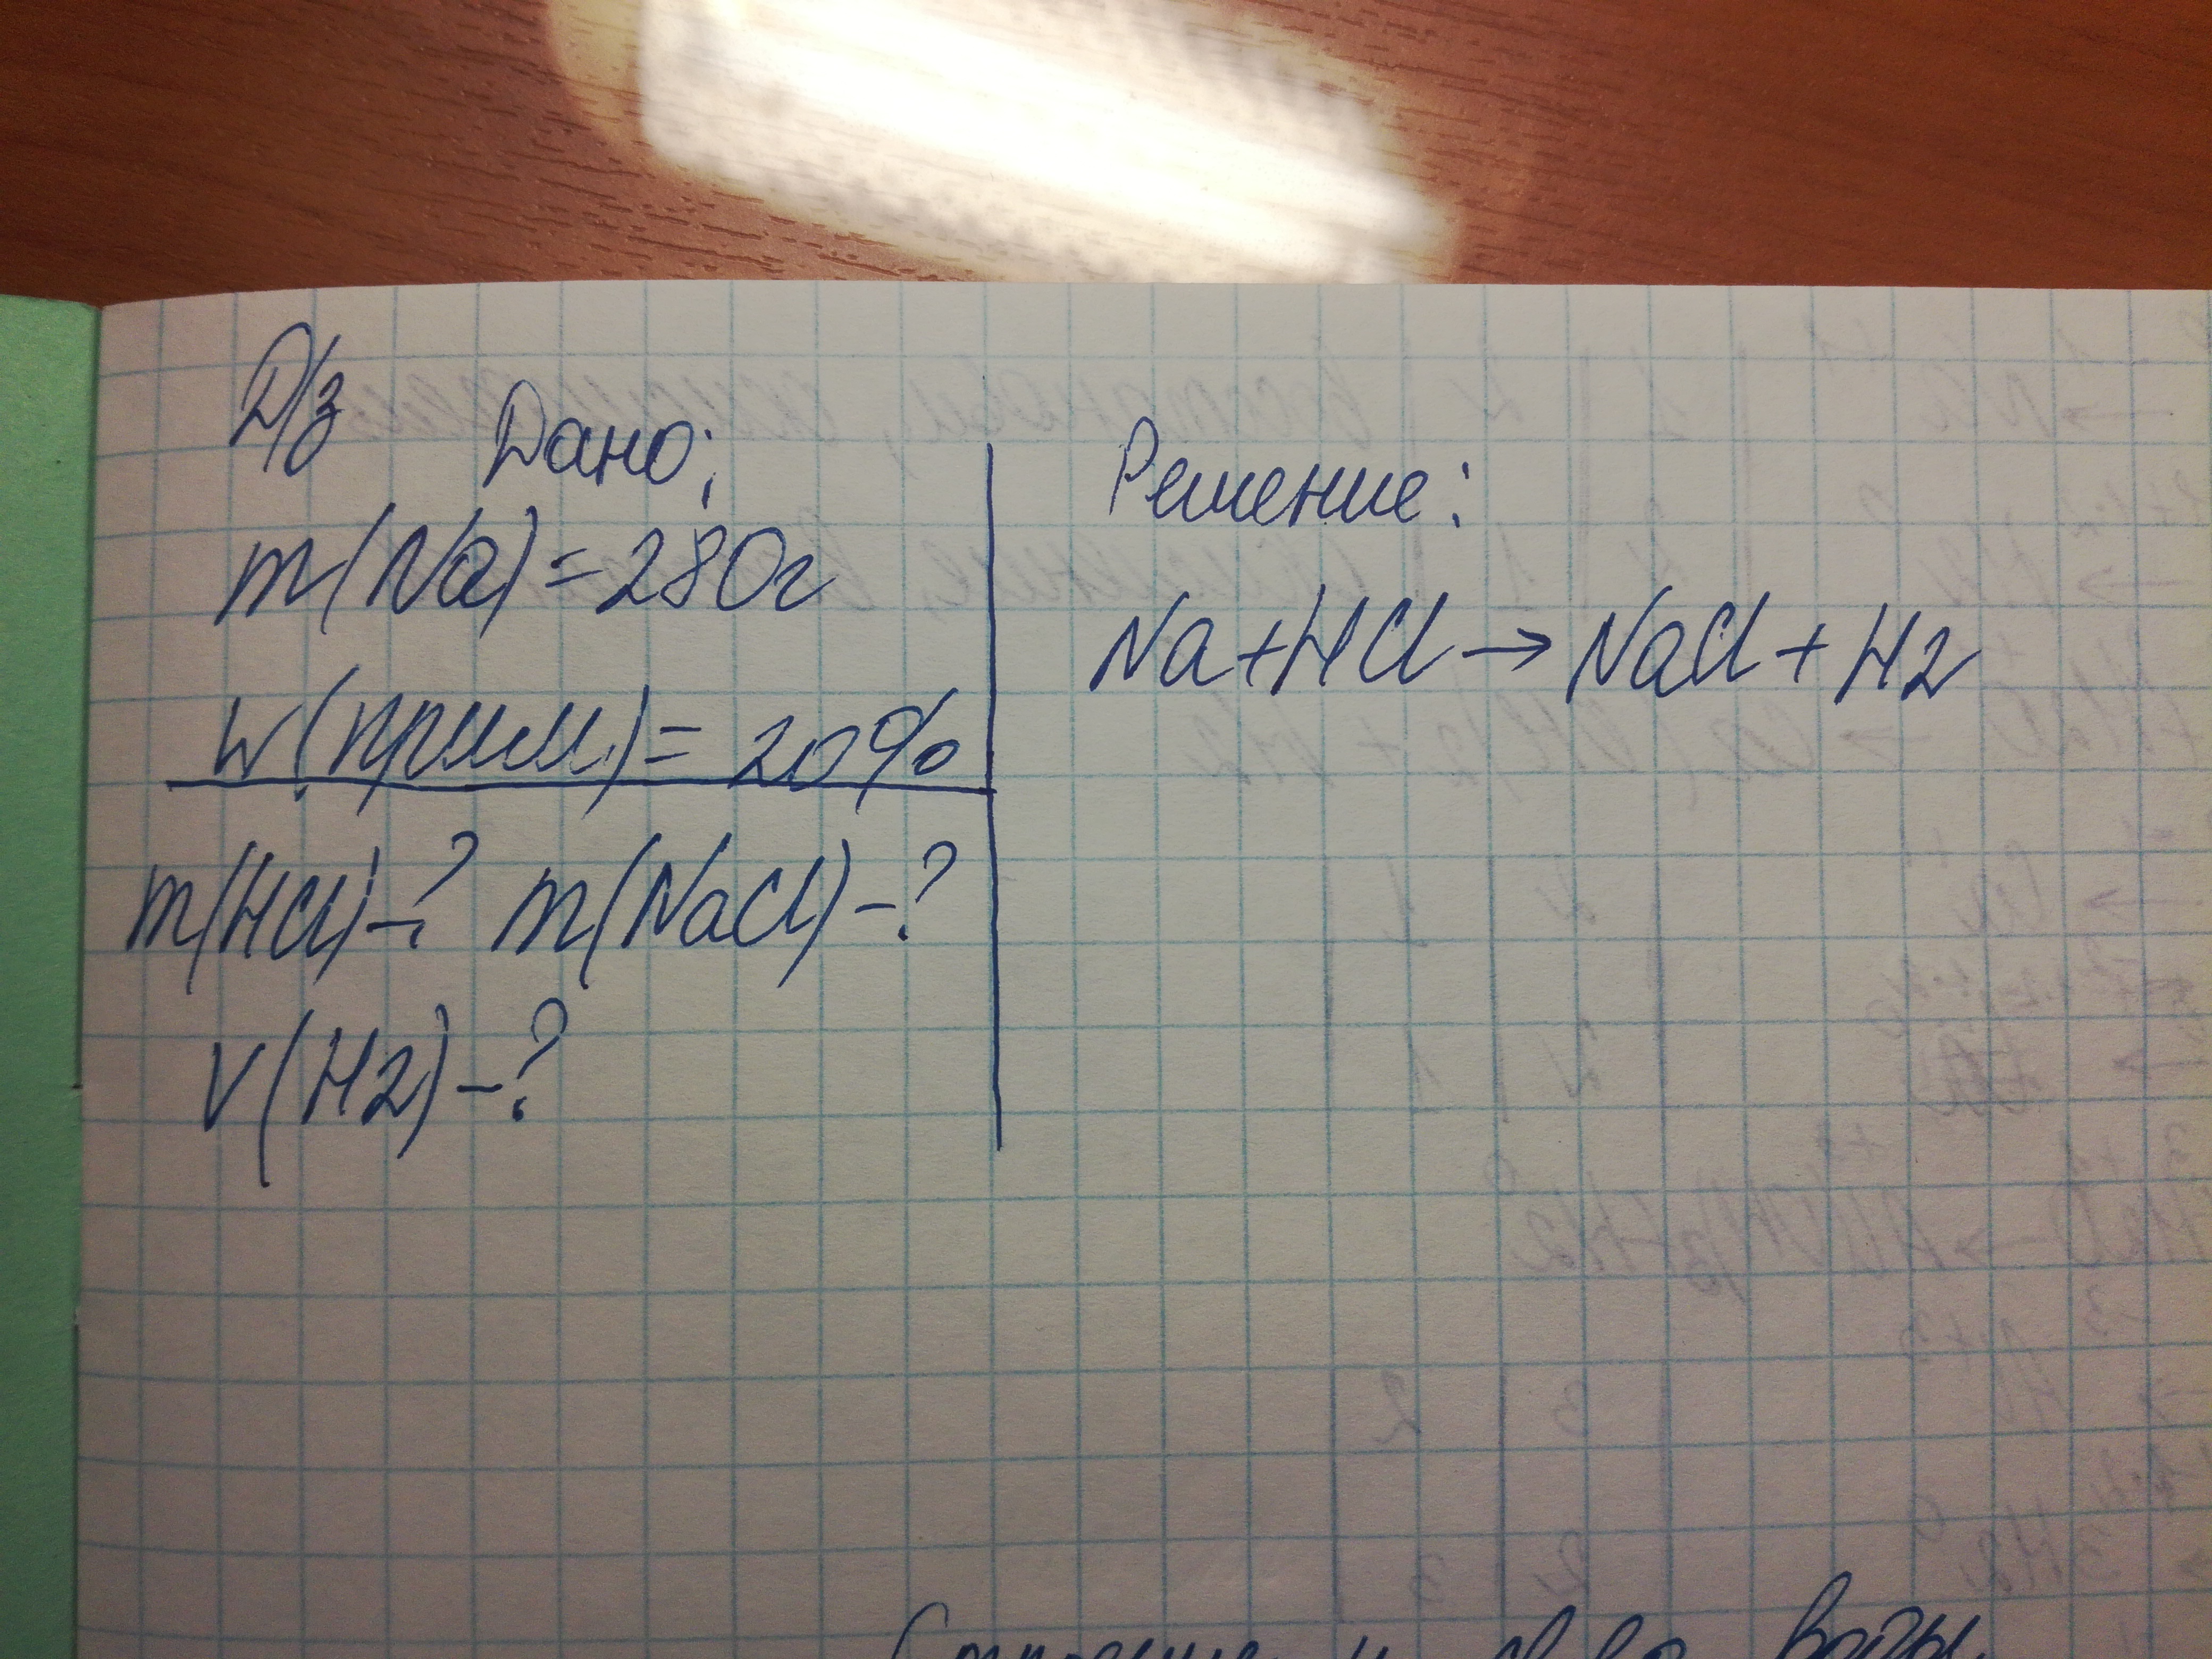 Д/з
Дано:
m(Na)=280г
w(прим)= 20%
m(HCl)-? m(NaCl)-?
V(H2)-?
Решение:
Na+HCl→NaCl+H2